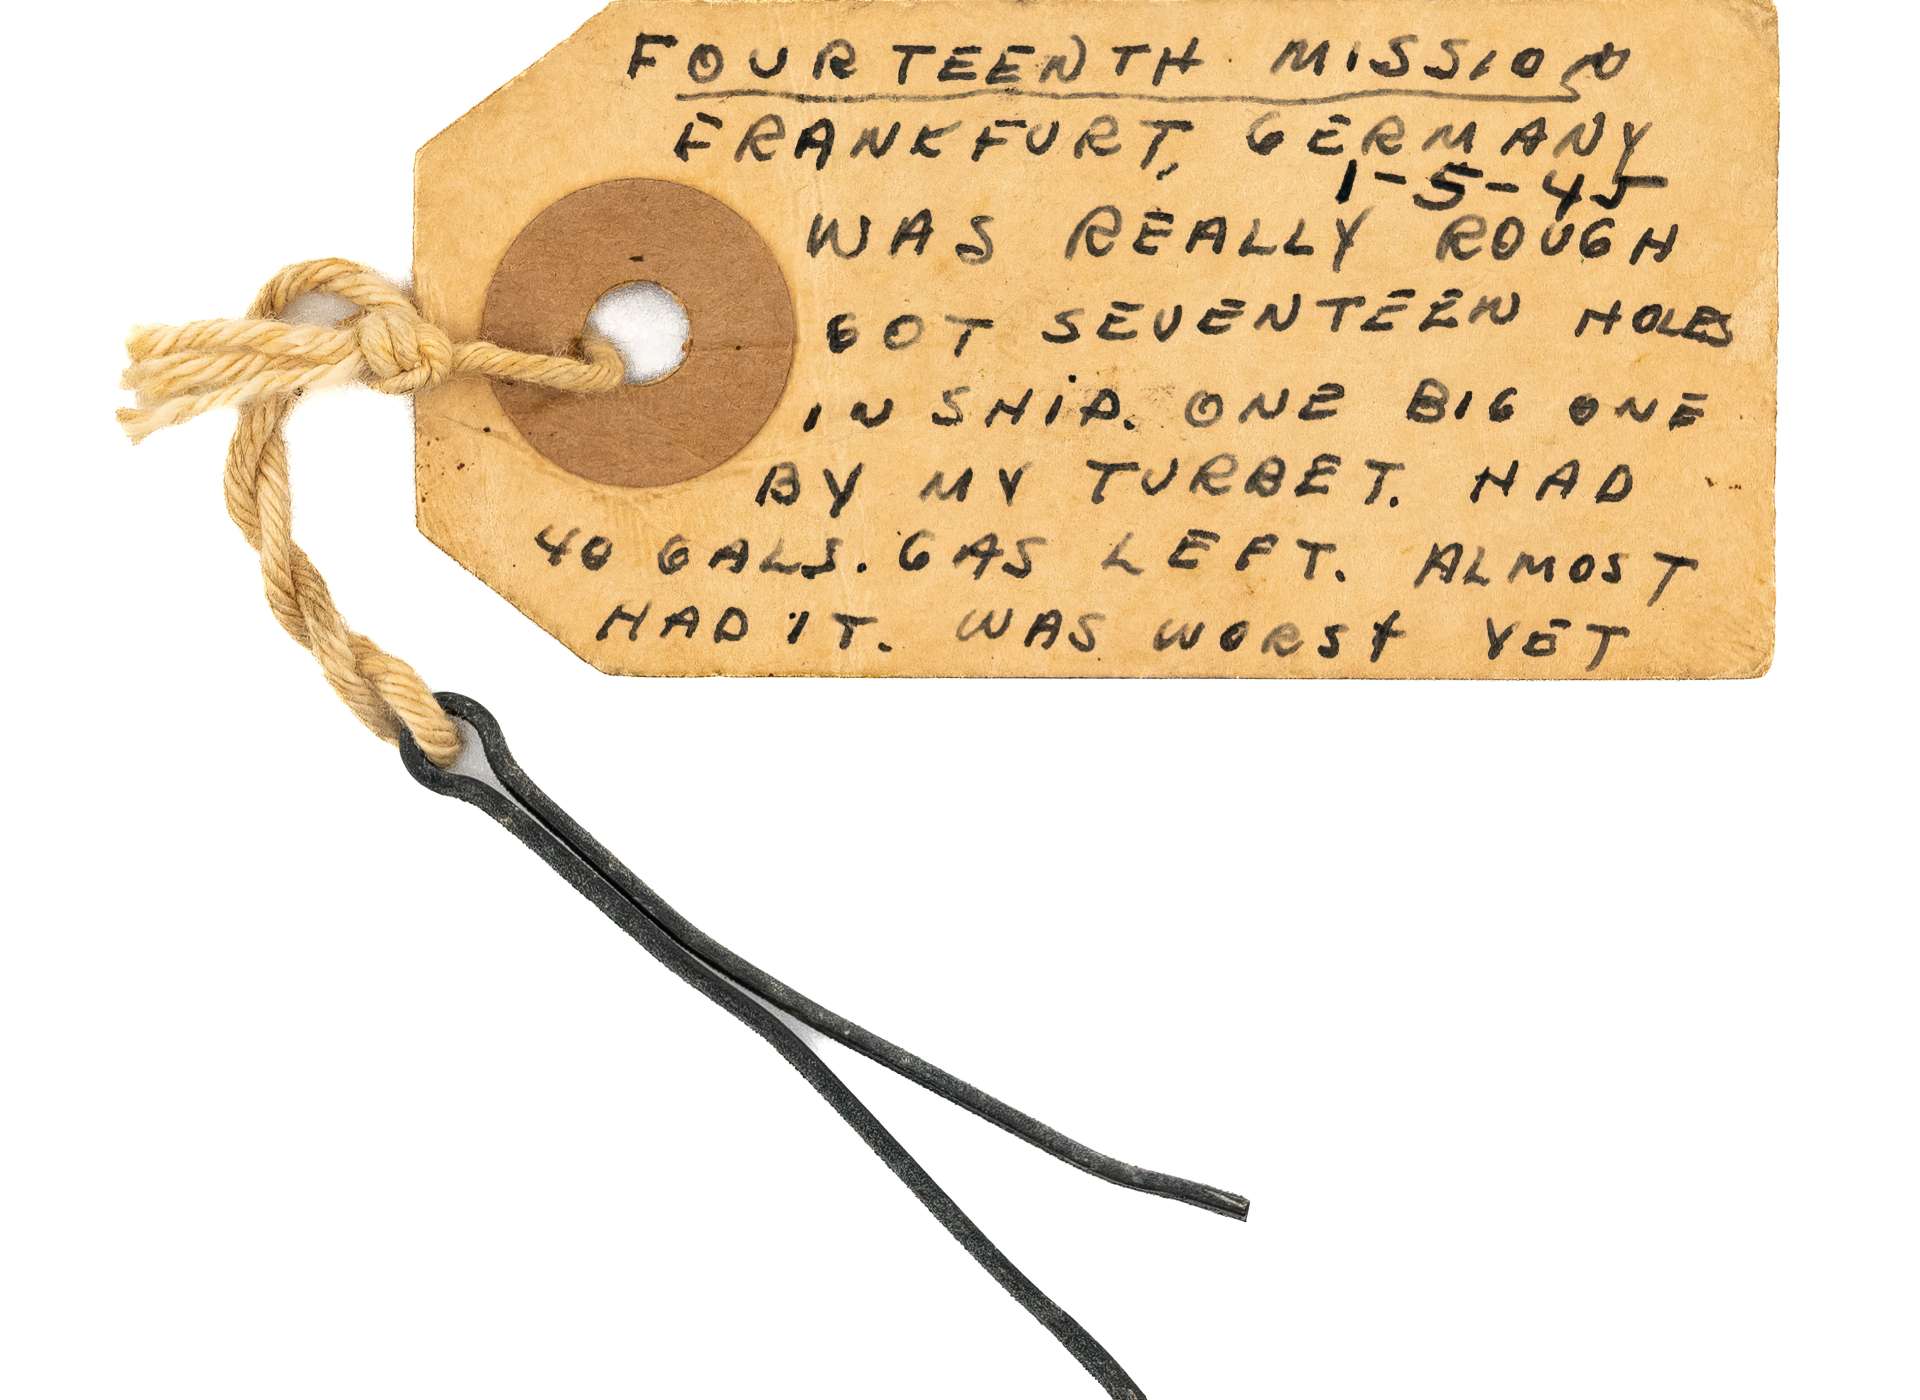 FOURTEENTH MISSION
FRANKFURT, GERMANY
1-5-45
WAS REALLY ROUGH
GOT SEVENTEEN HOLES
IN SHIP. ONE BIG ONE
BY MY TURRET. HAD
40 GALS. GAS LEFT. ALMOST
HAD IT. WAS WORST YET